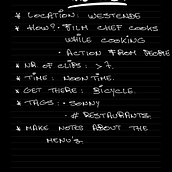 * LOCATION: WESTENDE
* HOW? • FILM CHEF COOKS
WHILE COOKING
• ACTION FROM DRONE
* NR. OF CLIPS: > 7.
* TIME: NOONTIME.
* GET THERE: BICYCLE.
* TAGS: • SONNY
• # RESTAURANTS.
* MAKE NOTES ABOUT THE
MENU'S.